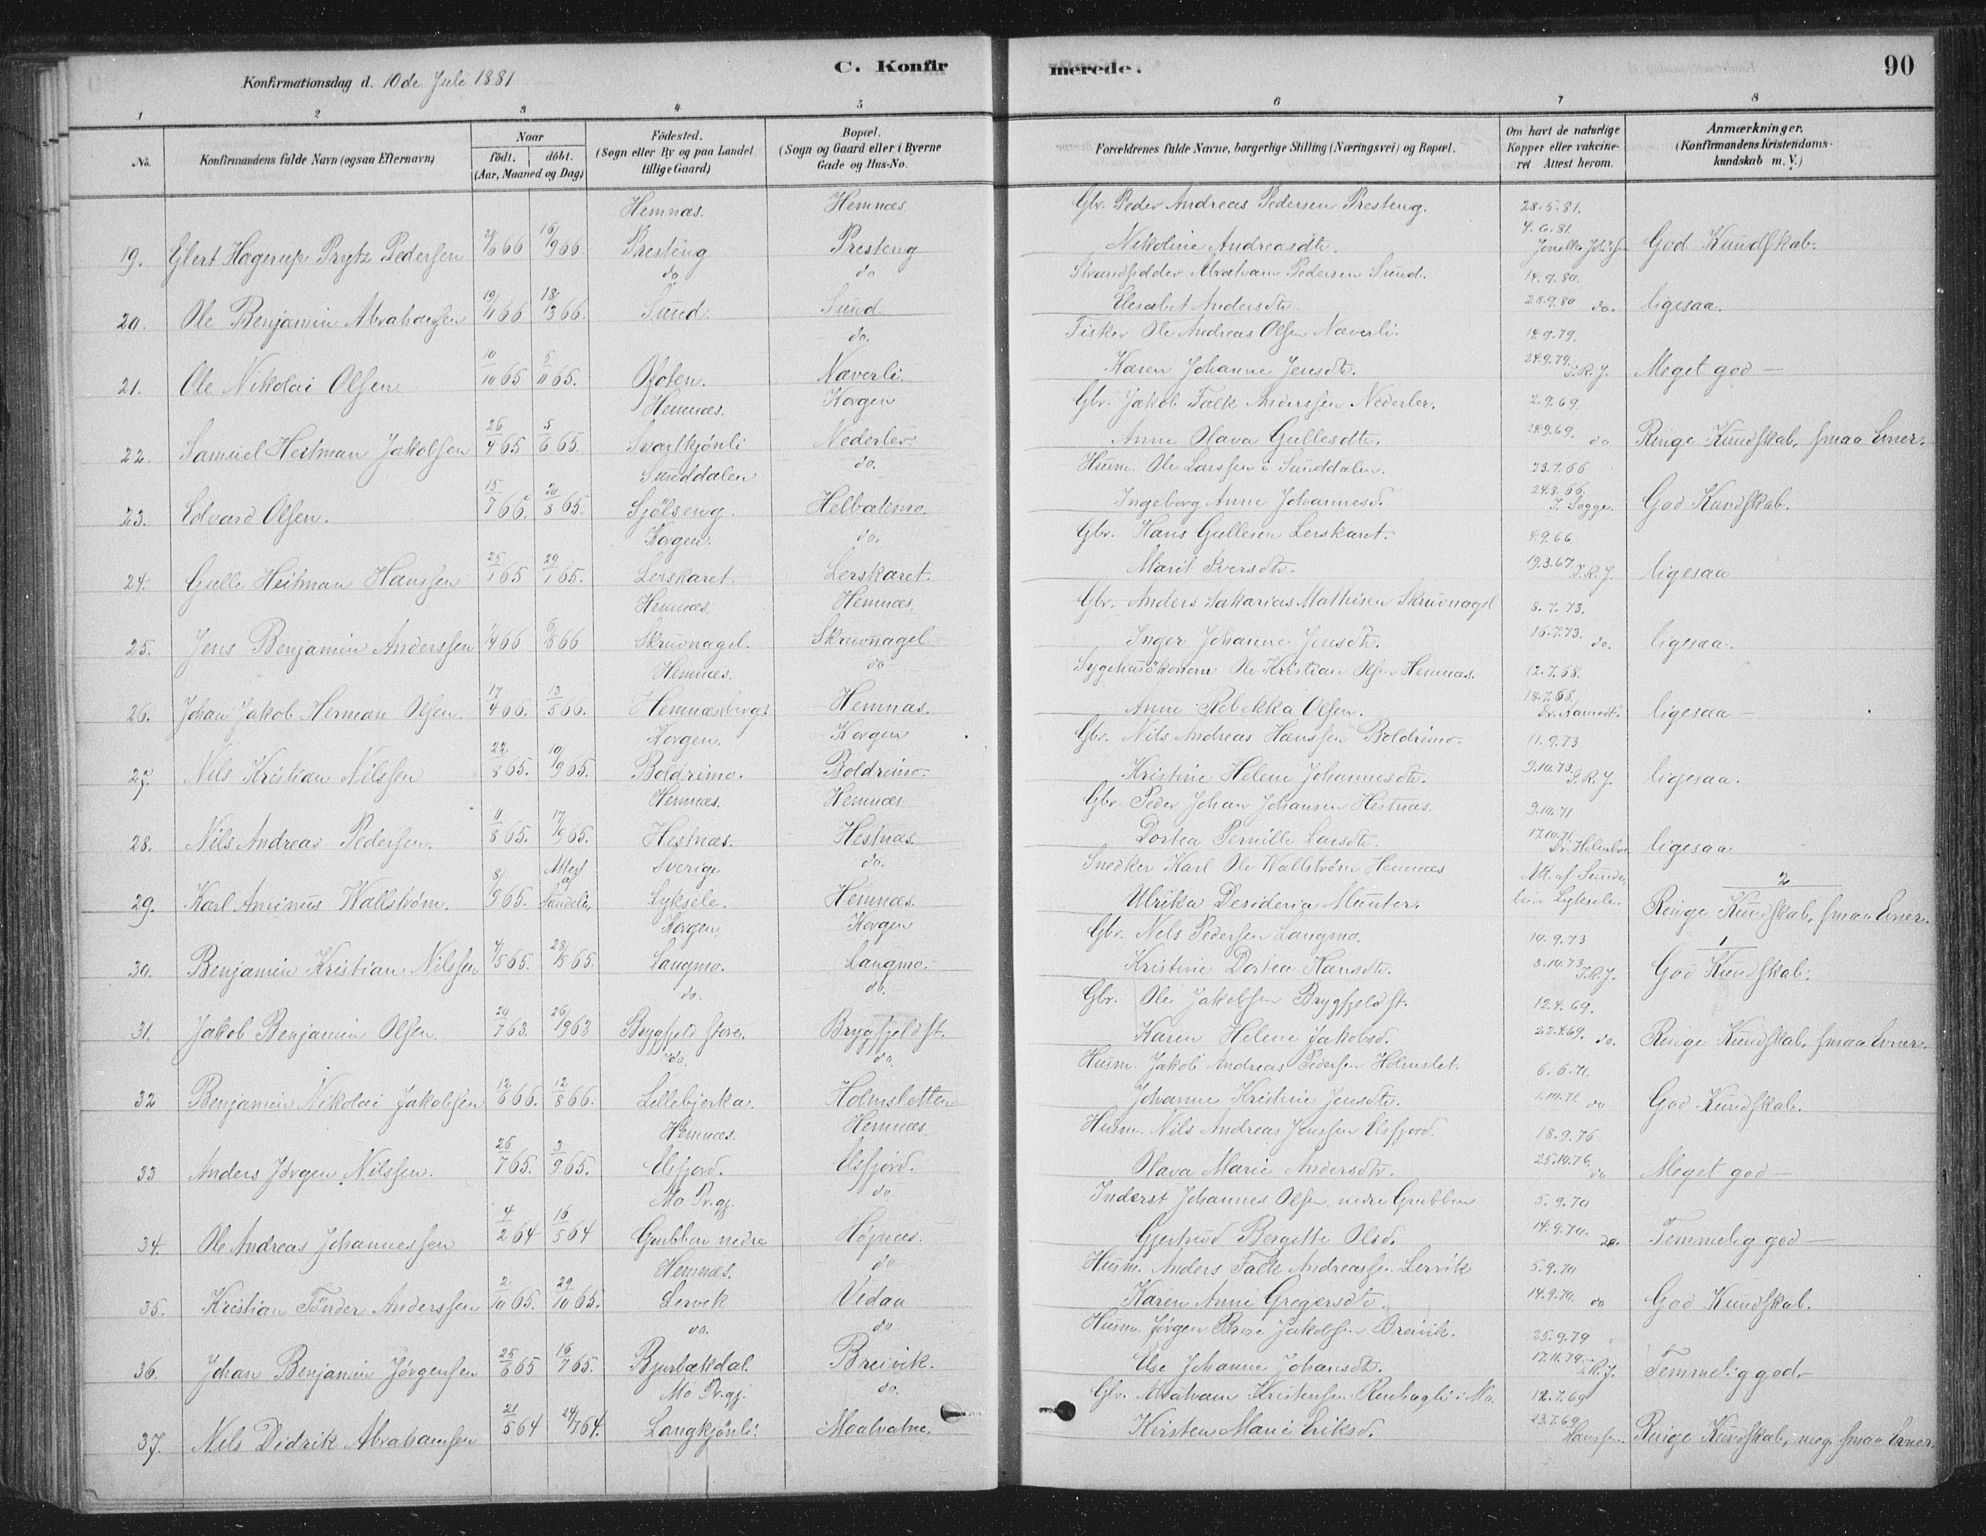 C. Konfirmerede. 90
Konfirmationsdag d. 10de Juli 1881
1 2 3 4 5 6 7 8
No. Konfirmandens fulde Navn (ogsaa Efternavn) Naar födt. döbt. (Aar, Maaned og Dag) Födested. (Sogn eller By og paa Landet tillige Gaard) Bopæl. (Sogn og Gaard eller i Byerne Gade og Hus-No. Forældrenes fulde Navne, borgerlige Stilling (Næringsvei) og Bopæl. Om havt de naturlige Kopper eller vakcineret Attest herom. Anmærkninger. (Konfirmandens Kristendomskundskab m. V.)
Hemnæs. Hemnæs. Gbr. Peder Andreas Pedersen Presteng. 28.5.81.
19. Glert Hagerup Prytz Pedersen Presteng Presteng Nikoline Andreasdtr. 4.6.81. God Kundskab.
do do Strandsidder Abraham Pedersen Sund. 14.9.80.
20. Ole Benjamin Abrahamsen Sund Sund Elesabet Andersdtr. 28.9.80 do. ligesaa.
do. Fisker Ole Andreas Olsen Næverli. 14.9.79.
21. Ole Nikolai Olsen 10/10 65 5/11 65. Ofoten. Næverli Karen Johanne Jensdtr. 24.9.79. J.R.J. Meget god —
Hemnæs. Korgen Gbr. Jakob Falk Anderssen Nederler. 2.9.69.
22. Samuel Heitman Jakobsen 26/4 65 5/6 65. Svartkjönli Nederler Anne Olava Gullesdtr. 24.9.69. do Ringe Kundskab, smaa Evner.
Sunddalen do. Husm. Ole Larssen i Sunddalen. 23.7.66
23. Edvard Olsen. 15/7 65 20/8 65. Sjölseng. Helbætmo. Ingeborg Anne Johannesd. 24.8.66. God Kundskab.
Korgen. do. Gbr. Hans Gullesen Lerskaret. 4.9.66
24. Gulle Heitman Hanssen 25/1 65 29/1 65. Lerskaret. Lerskaret. Marit Iversdtr. 19.3.67. J.R.J. ligesaa
Hemnæs. Hemnæs. Gbr. Anders Sakarias Mathisen Skruvnagel 8.7.73.
25. Jens Benjamin Anderssen Skruvnagel. Skruvnagel Inger Johanne Jensdtr. 16.7.73. do. ligesaa.
Hemnæs. do Sygehusökonom Ole Kristian Olsen Hemnæs. 12.7.68.
26. Johan Jakob Herman Olsen. 17/4 66. 13/5 66. Hemnæsberget Hemnæs. Anne Rebekka Olsen. 18.7.68. ligesaa —
Korgen. Korgen Gbr. Nils Andreas Hanssen Boldrimo. 11.9.73
27. Nils Kristian Nilssen 22/8 65. 10/9 65. Boldrimo. Boldrimo. Kristine Helene Johannesdtr. 9.10.73 J.R.J. ligesaa.
Hemnæs. Hemnæs Gbr. Peder Johan Johansen Hestnæs. 9.10.71
28. Nils Andreas Pedersen. 11/8 65. 17/9 65. Hestnæs. Hestnæs. Dortea Pernille Larsdtr. 17.10.71 ligesaa
Attest Sverige do. Snedker Karl Ole Wallström Hemnæs Att. af 2
29. Karl Aminus Wallström. 8/9 65. Lyksele. Hemnæs. Ulrika Desideria Munter. Lyksele. Ringe Kundskab, smaa Evner.
Korgen Korgen Gbr. Nils Pedersen Langmo. 10.9.73 1
30. Benjamin Kristian Nilssen 28/5 65. Langmo. Langmo. Kristine Dortea Hansdtr. 8.10.73 J.R.J. God Kundskab.
do. do. Gbr. Ole Jakobsen Brygfjeld st. 12.4.69.
31. Jakob Benjamin Olsen. 20/7 63. Brygfjeld store. Brygfjeld st. Karen Helene Jakobsd. 22.4.69. do. Ringe Kundskab, smaa Evner.
do. do. Husm. Jakob Andreas Pedersen Holmslet. 6.6.71.
32 Benjamin Nikolai Jakobsen 12/6 66. 12/8 66. Lillebjerka. Holmsletten Johanne Kristine Jensdtr. 1.10.71 do God Kundskab.
Hemnæs. Hemnæs Husm. Nils Andreas Jenssen Elsfjord. 18.9.76
33 Anders Jörgen Nilssen. 26/7 65. 3/9 65. Elsfjord. Elsfjord. Olava Marie Andersdtr. 25.10.76. do Meget god —
Mo Pr.gj. do Inderst Johannes Olsen nedre Grubben 5.9.70
34. Ole Andreas Johannessen 4/2 64 16/5 64 Grubben nedre Højnæs. Gjertrud Bergitte Olsd. 14.9.70. do. Temmelig god —
Hemnæs. do Husm. Anders Falk Andreassen Lervik 5.9.70
35. Kristian Tönder Anderssen 2/10 65. 29/10 65. Lervik Vidaa Karen Anne Gregersdtr. 14.9.70. do God Kundskab.
do. do Husm. Jörgen Jakobsen Breivik. 25.9.79
36. Johan Benjamin Jörgensen 25/6 65 16/7 65. Bjurbækdal. Breivik. Else Johanne Johansdtr. 17.11.79. J.R.J. Temmelig god. —
Mo Pr.gj. do. Gbr. Abraham Kristensen i Mo. 12.7.69
37. Nils Didrik Abrahamsen 21/5 64 24/7 64. Langkjönli. Moalvatne. Kirsten Marie Eriksd. 23.7.69 Hanssen. Ringe Kundskab, meg. smaa Evner.